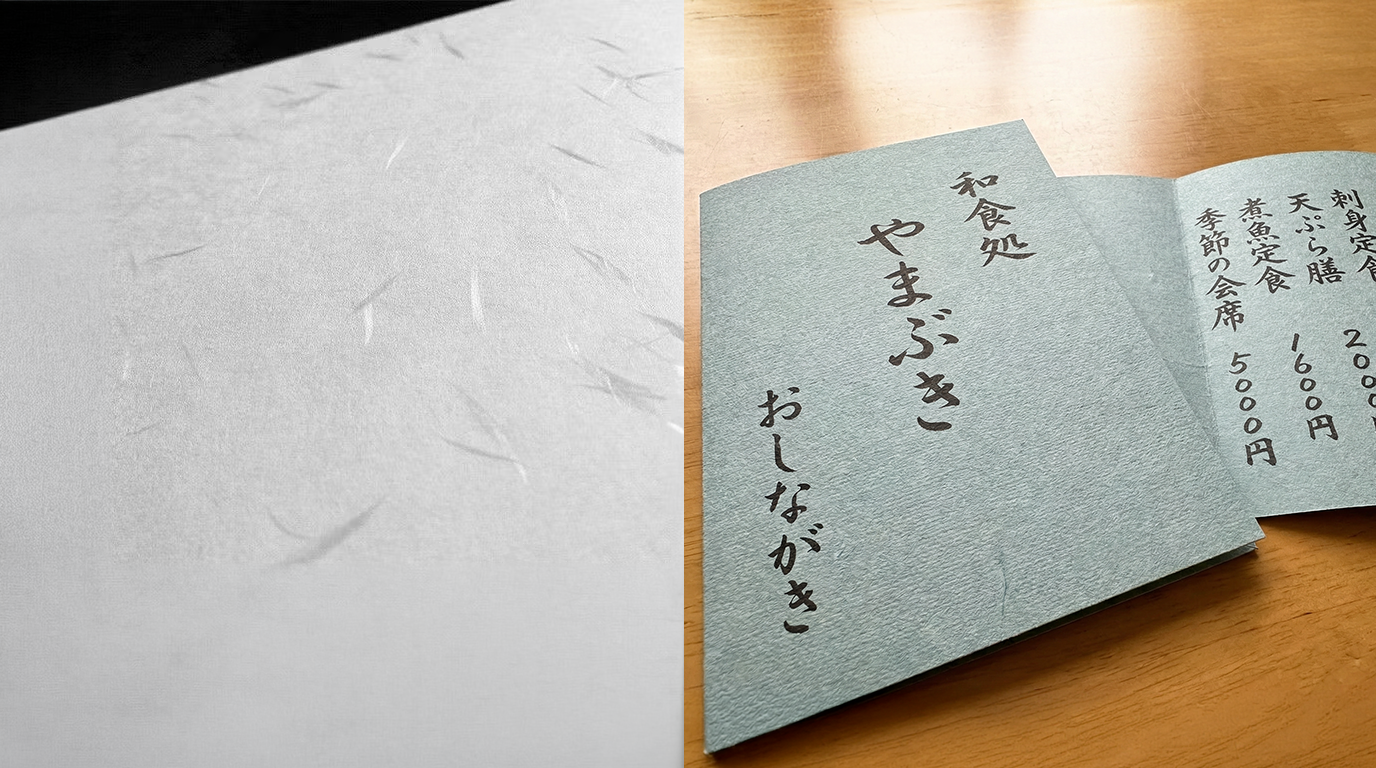 和食処
やまぶき
おしながき
刺身定食
200
天ぷら膳
1600円
煮魚定食
季節の会席
5000円